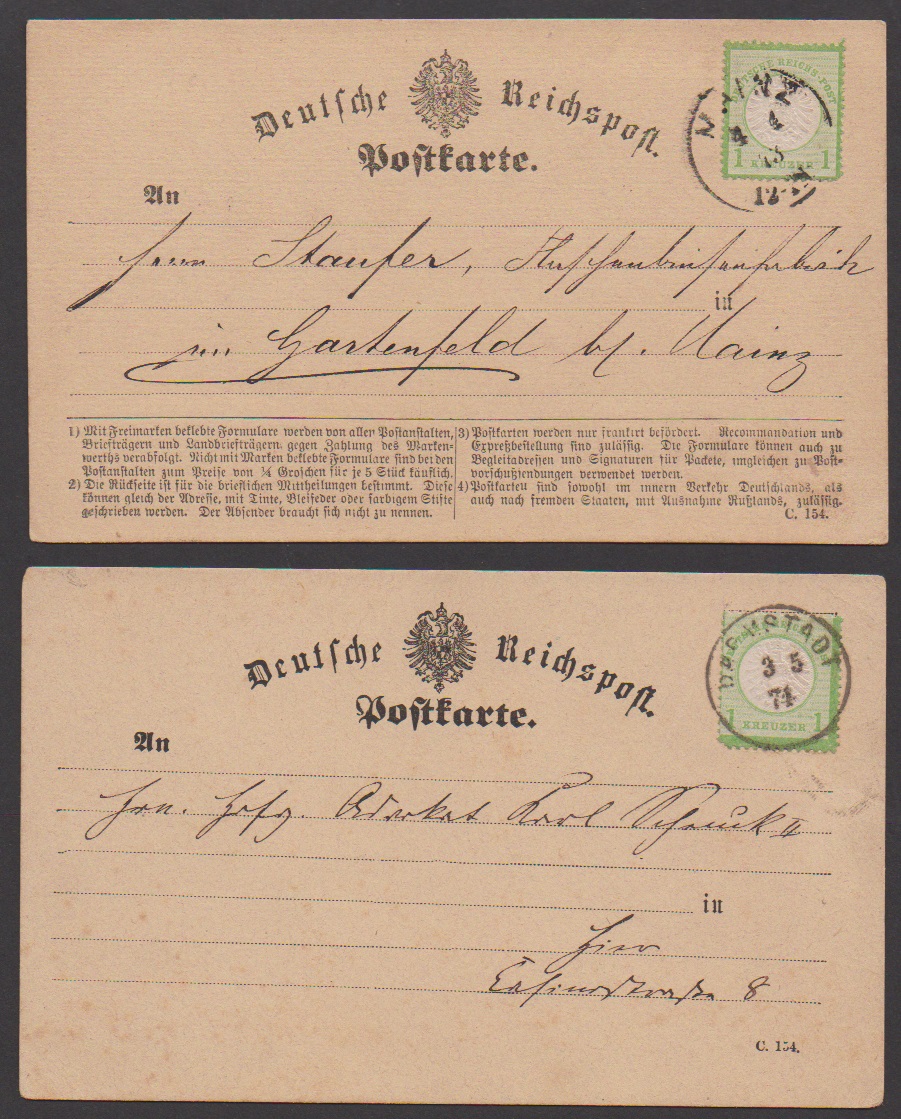 Deutsche Reichspost.
DEUTSCHE REICHS-POST
1 KREUZER 1
MAINZ
4 4
12
Postkarte.
An
Herrn Staufer,
in
im Gartenfeld b/. Mainz
1) Mit Freimarken beklebte Formulare werden von allen Postanstalten,
Briefträgern und Landbriefträgern gegen Zahlung des Marken-
werths verabfolgt. Nicht mit Marken beklebte Formulare sind bei den
Postanstalten zum Preise von ¼ Groschen für je 5 Stück käuflich.
2) Die Rückseite ist für die brieflichen Mittheilungen bestimmt. Diese
können gleich der Adresse, mit Tinte, Bleifeder oder farbigem Stifte
geschrieben werden. Der Absender braucht sich nicht zu nennen.
3) Postkarten werden nur frankirt befördert. Recommandation und
Expreßbestellung sind zulässig. Die Formulare können auch zu
Begleitadressen und Signaturen für Packete, imgleichen zu Post-
vorschußsendungen verwendet werden.
4) Postkarten sind sowohl im innern Verkehr Deutschlands, als
auch nach fremden Staaten, mit Ausnahme Rußlands, zulässig.
C. 154.
Deutsche Reichspost.
DARMSTADT
3 5
74
1 KREUZER 1
Postkarte.
An
Hrn. Hofg. Advokat Karl Schenck II
in
Hier
Casinostraße 8
C. 154.